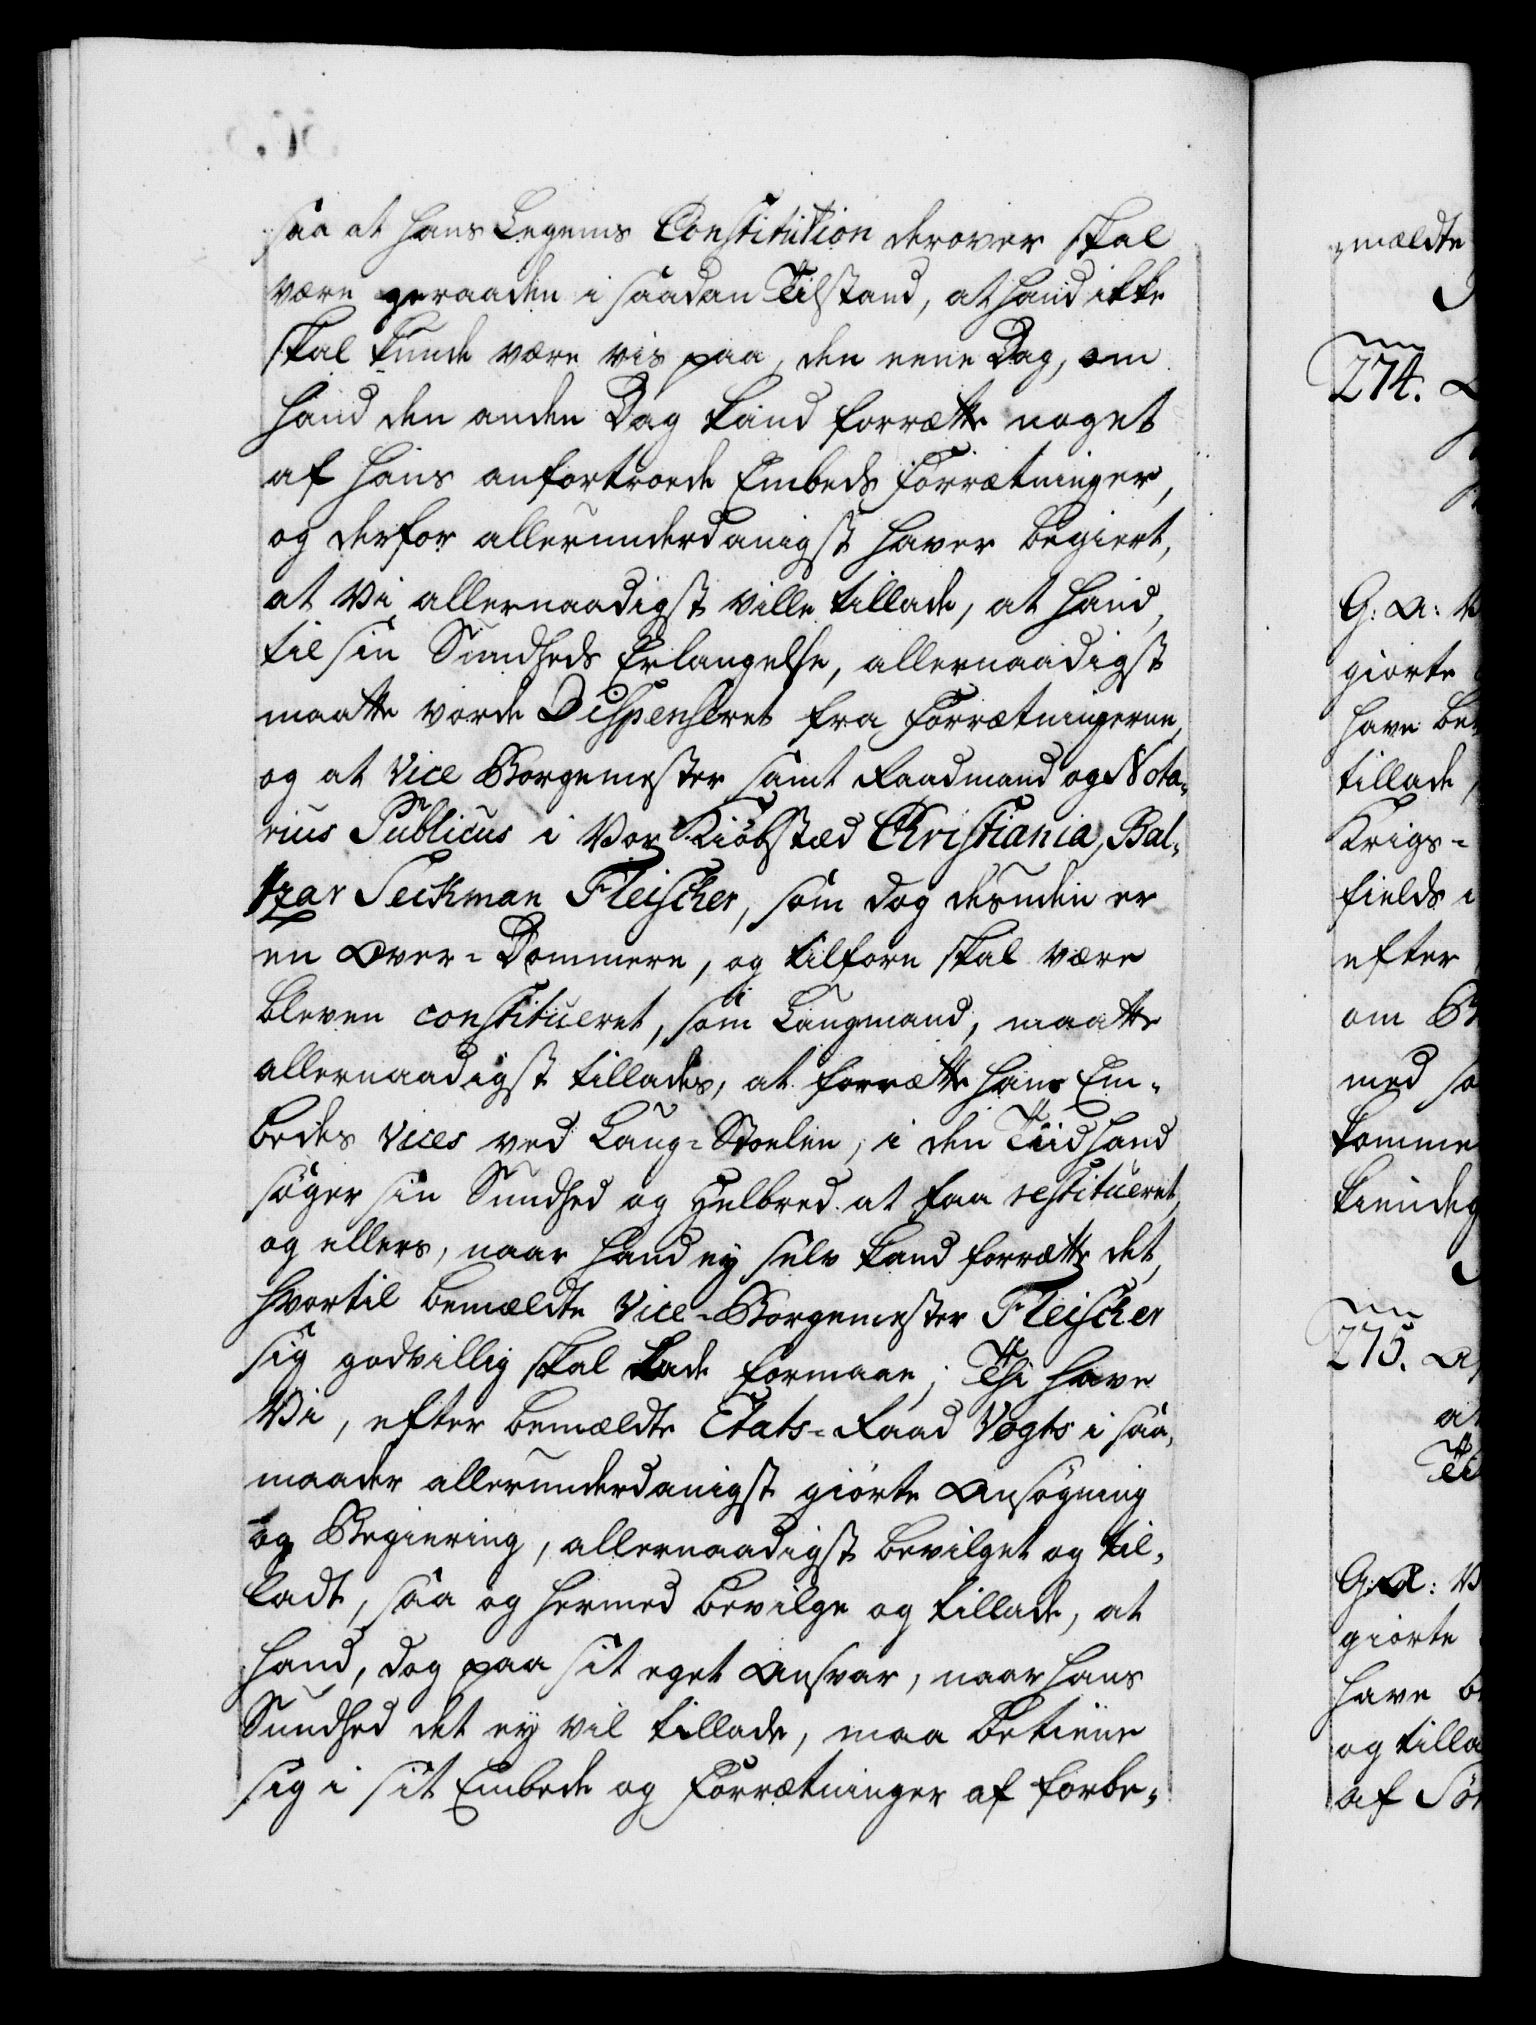 saa at hans Legems Constitution derover skal
være geraaden i saadan Tilstand, at hand ikke
skal kunde være vis paa, den eene Dag, om
hand den anden Dag kand forrætte noget
af hans anfortroede Embeds Forrætninger,
og derfor allerunderdanigst haver begiert,
at Vi allernaadigst ville tillade, at hand,
til sin Sundheds Erlangelse, allernaadigst
maatte vorde Dispenseret fra Forrætningerne,
og at Vice Borgemester samt Raadmand og Nota-
rius Publicus i Vor Kiøbstæd Christiania, Bal-
tzar Seckman Fleischer, som dog desuden er
en Over-Dommere, og tilforn skal være
bleven constitueret, som Laugmand, maatte
allernaadigst tillades, at forrætte hans Em-
bedes vices ved Laug-Stoelen, i den Tiid hand
søger sin Sundhed og Helbred at faa restitueret,
og ellers, naar hand ey selv kand forrætte det,
hvortil bemældte Vice-Borgemester Fleischer
sig godvillig skal lade formaae; Thi have
Vi, efter bemældte Etats-Raad Vogts i saa-
maader allerunderdanigst giorte Ansøgning
og Begiering, allernaadigst bevilget og til-
ladt, saa og hermed bevilge og tillade, at
hand, dog paa sit eget Ansvar, naar hans
Sundhed det ey vil tillade, maa betiene
sig i sit Embede og Forrætninger af forbe-
mældte
274.
G: A: V
giorte
have be
tillade,
Krigs-
fields i
efter
om
med
komme
275.
G: A: V
giorte
have
og tilla
af